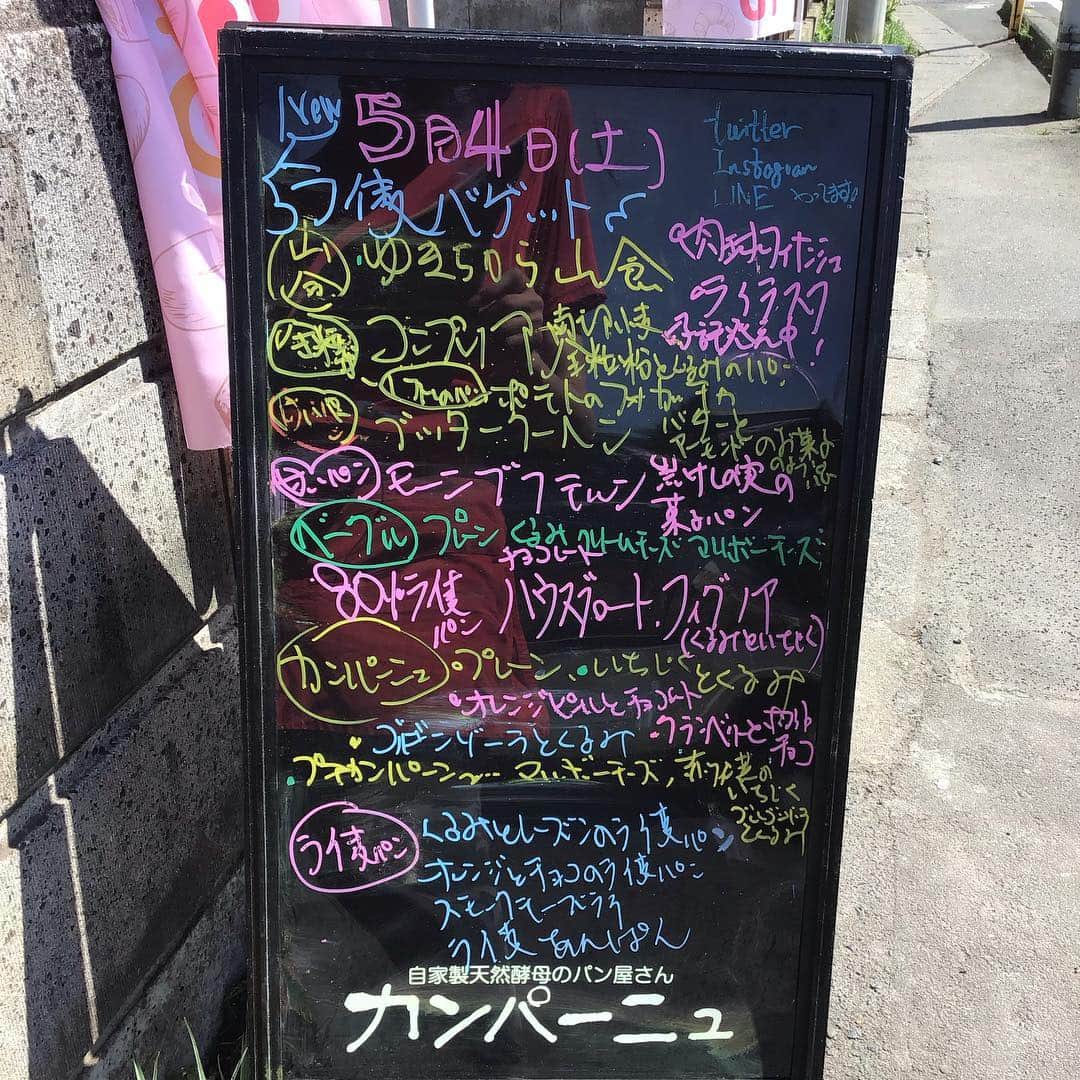 New 5月4日(土)
twitter
Instagram
LINE やってます!
ライ麦バゲット
山食 ゆきちから山食
ライラスク
全粒粉とくるみのパン
ポテトのフォカッチャ
ブッタークーヘン バターと
アーモンドのお菓子
のようなパン
モーニングフデルン 黒けしの実の
菓子パン
ベーグル プレーン くるみ クリームチーズ マリボーチーズ
チョコレート
80%ライ麦パン ハウスブロート.フィグノア
(くるみといちじく)
カンパーニュ ・プレーン、・いちじくとくるみ
・オレンジピールとチョコレート
・クランベリーとホワイトチョコ
・ゴルゴンゾーラとくるみ
・プチカンパーニュ… マリボーチーズ,
いちじく
とくるみ
ライ麦パン くるみとレーズンのライ麦パン
オレンジとチョコのライ麦パン
スモークチーズライ
ライ麦あんぱん
自家製天然酵母のパン屋さん
カンパーニュ